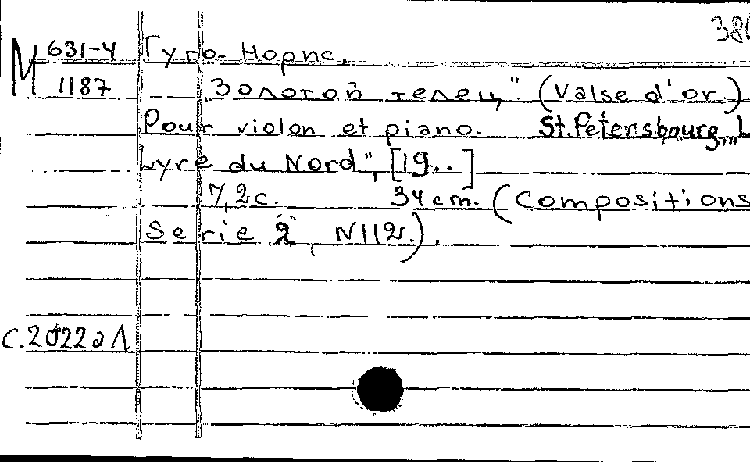 380
М 631-4 Гуро-Норис.
1187 "Золотой телец" (Valse d'or)
Pour violon et piano. St. Petersbourg, „L
Lyre du Nord", [19..]
7,2 с. 34 cm. (Compositions
Serie 2, N112).
С.2022а1